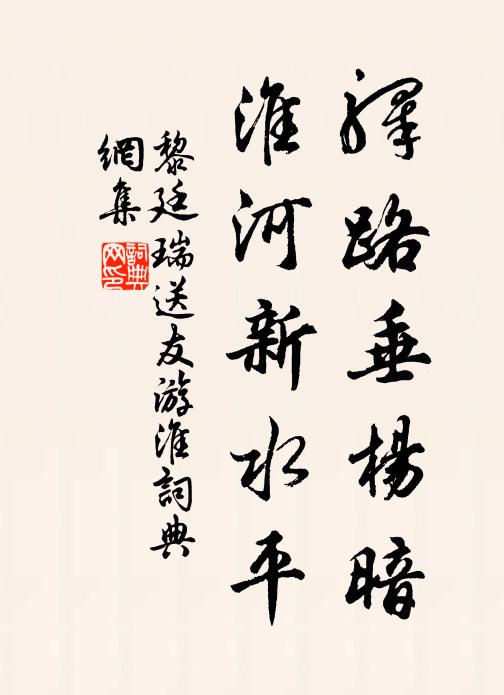 驛路垂楊暗
淮河新水平
黎廷瑞送友游淮詞典
網集
詞典網印